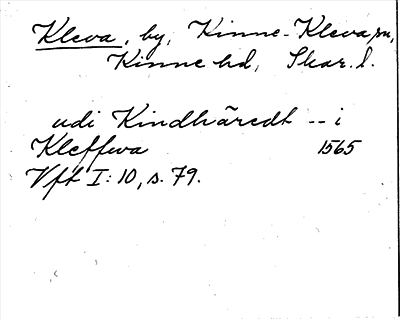 Kleva, by, Kinne-Kleva sn,
Kinne hd, Skar. l.
udi Kindhäredt -- i
Kleffwa 1565
Vft I: 10, s. 79.